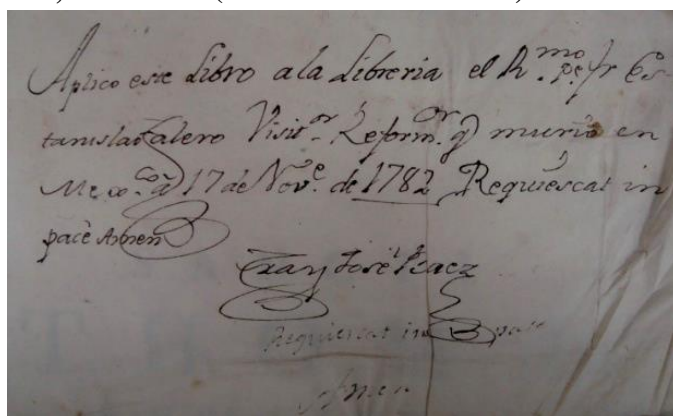 Aplico este Libro a la Libreria el R.mo P.e fr Es-
tanislao Falero Visit.or Reform.or q murio en
Mex.co a 17 de Nov.e de 1782 Requiescat in
pace Amen
Fray José Baez
Requiescat in pace
Amen